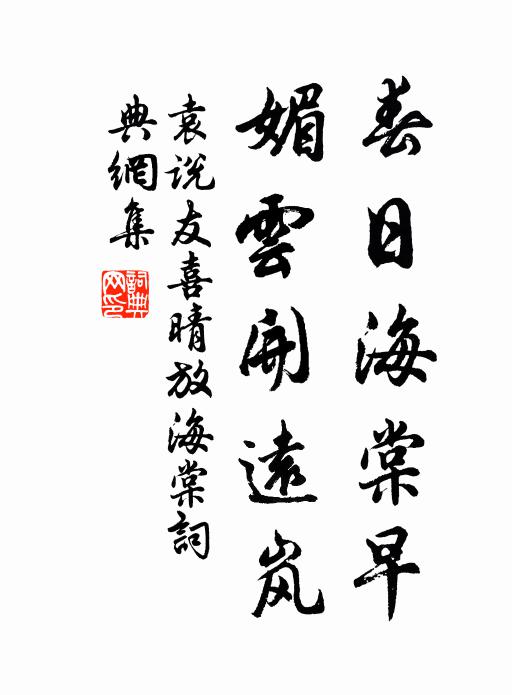 春日海棠早
媚雲開遠岚
袁说友喜晴放海棠詞
典網集
詞典網印